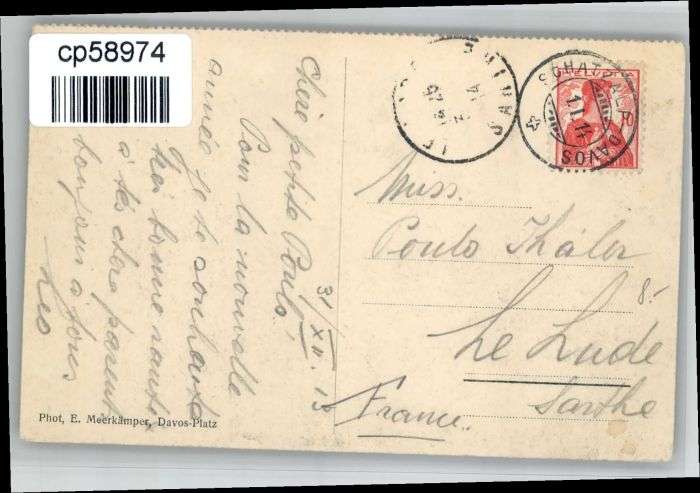 cp58974
Chère petite Poulo,
31/XII.13
Pour la nouvelle
année je te souhaite
bonne santé
à tes chers parents
toujours à vous
Leo
Phot, E. Meerkämper, Davos-Platz
SCHATZALP
1.I.14
DAVOS
Miss.
Poulo Kháler
Le Lude
Sarthe
France.